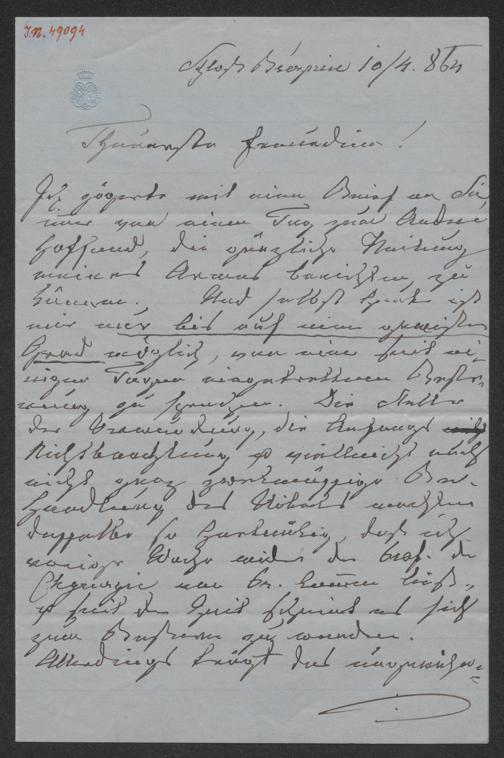 J.N. 49094
Schloß 10/4. 86
Theuerste Freundin!
Ich zögerte mit einem Brief an Sie
immer von einem Tag zum Andern
hoffend, die gänzliche Heilung
meines Armes berichten zu
können. Und selbst heute ist
mir nur bis auf einen gewissen
Grad möglich, von einer seit ei-
nigen Tagen eingetretenen Besse-
rung zu sprechen. Die Stelle
der Verwundung, die Anfangs
Nichtbeachtung & vielleicht auch
nicht ganz zweckmässige Be-
handlung des Übels machten
dasselbe so hartnäckig, daß ich
vorige Woche wieder den Prof. der
Chirurgie von Gr. kommen ließ,
& seit der Zeit scheint es sich
zum Bessern zu wenden.
Allerdings trägt das